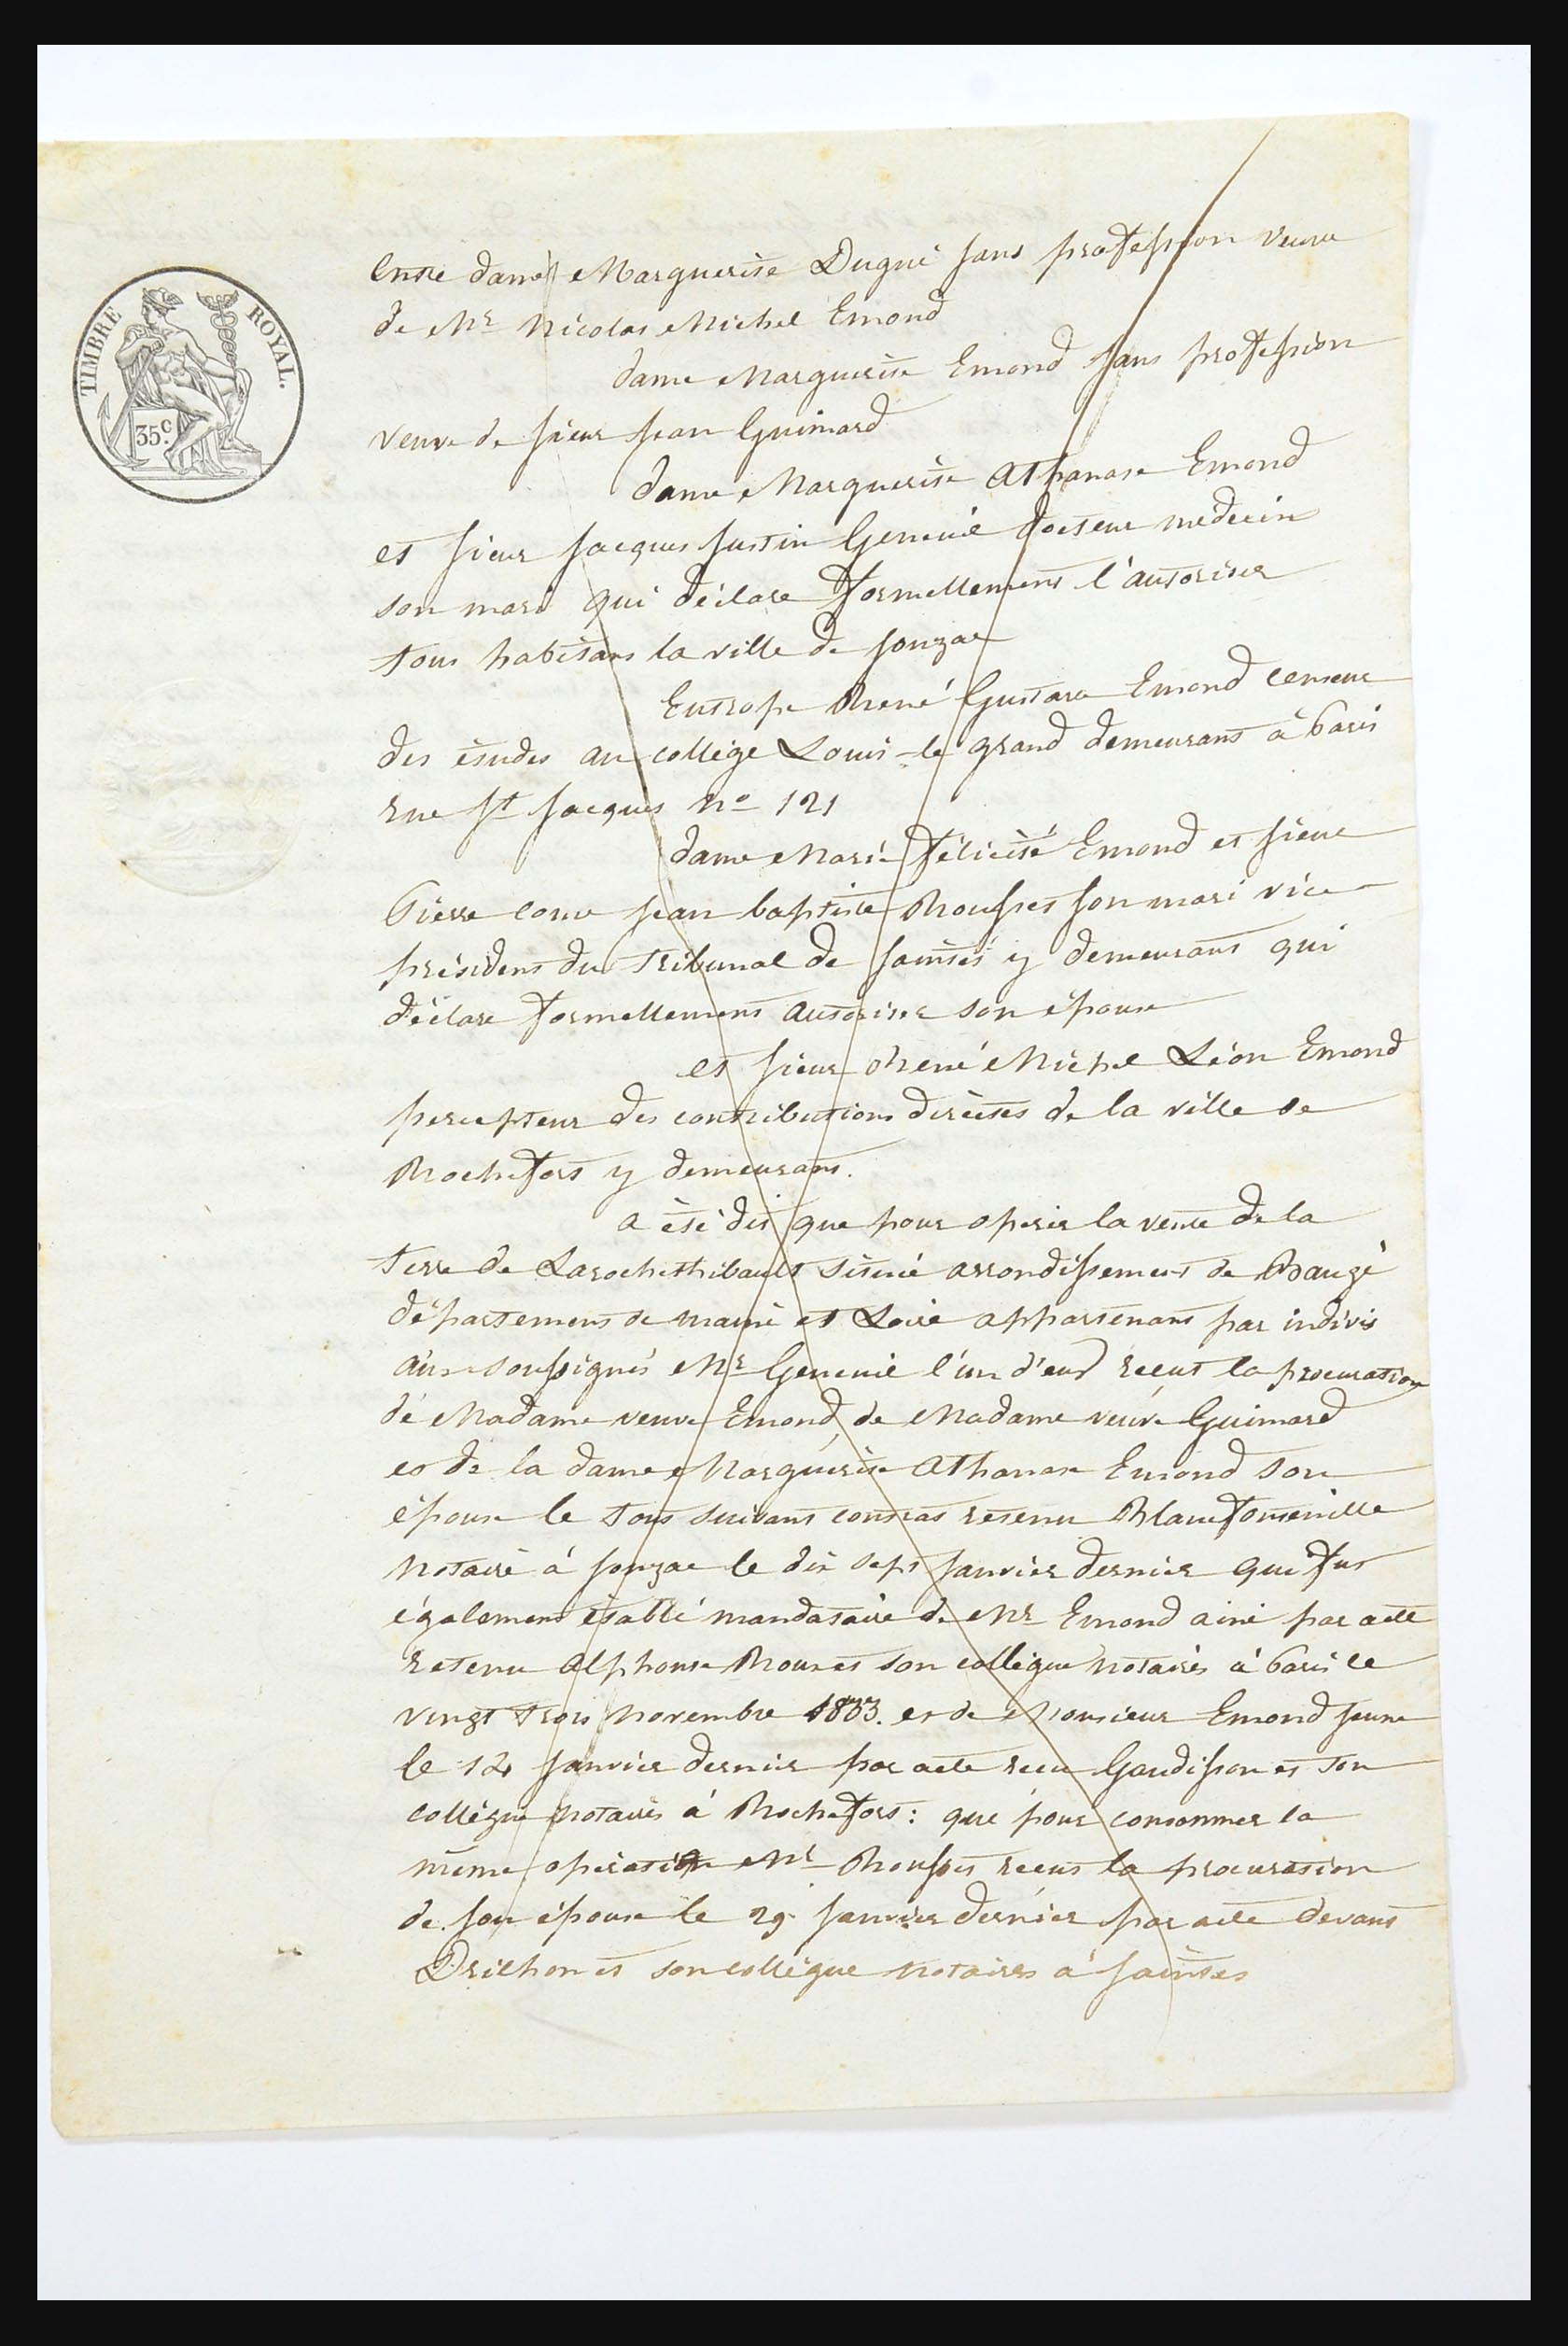 TIMBRE ROYAL.
35c.
Entre dame Marguerite Dugué sans profession veuve
de Mr Nicolas Michel Emond
dame Marguerite Emond sans profession
veuve de sieur Jean Guimard
dame Marguerite Athanase Emond
et sieur Jacques Justin docteur médecin
son mari qui déclare formellement l'autoriser
tous habitans la ville de Jonzac
Eutrope René Gustave Emond censeur
des études au collège Louis-le grand demeurant à Paris
rue St Jacques no 121
dame Marie Félicité Emond et sieur
Pierre Come Jean baptiste Rousset son mari vice
président du tribunal de Saintes y demeurant qui
déclare formellement autoriser son épouse
et sieur René Michel Léon Emond
percepteur des contributions directes de la ville de
Rochefort y demeurant.
a été dit que pour opérer la vente de la
terre de Larochethibault située arrondissement de Baugé
département de maine et Loire appartenant par indivis
aux soussignés Mr l'un d'eux reçut la procuration
de Madame veuve Emond, de Madame veuve Guimard
et de la dame Marguerite Athanase Emond son
épouse le tout suivant contrat retenu Blancfontenille
Notaire à Jonzac le dix sept Janvier dernier qui fut
également établi mandataire de Mr Emond ainé par acte
retenu Alphonse et son collègue notaires à Paris le
vingt trois novembre 1833. et de Monsieur Emond jeune
le 14 Janvier dernier par acte reçu Gaudisson et son
collègue notaires à Rochefort: que pour consommer la
même opération Mr Rousset reçut la procuration
de son épouse le 29 Janvier dernier par acte devant
Drilhon et son collègue notaires à Saintes